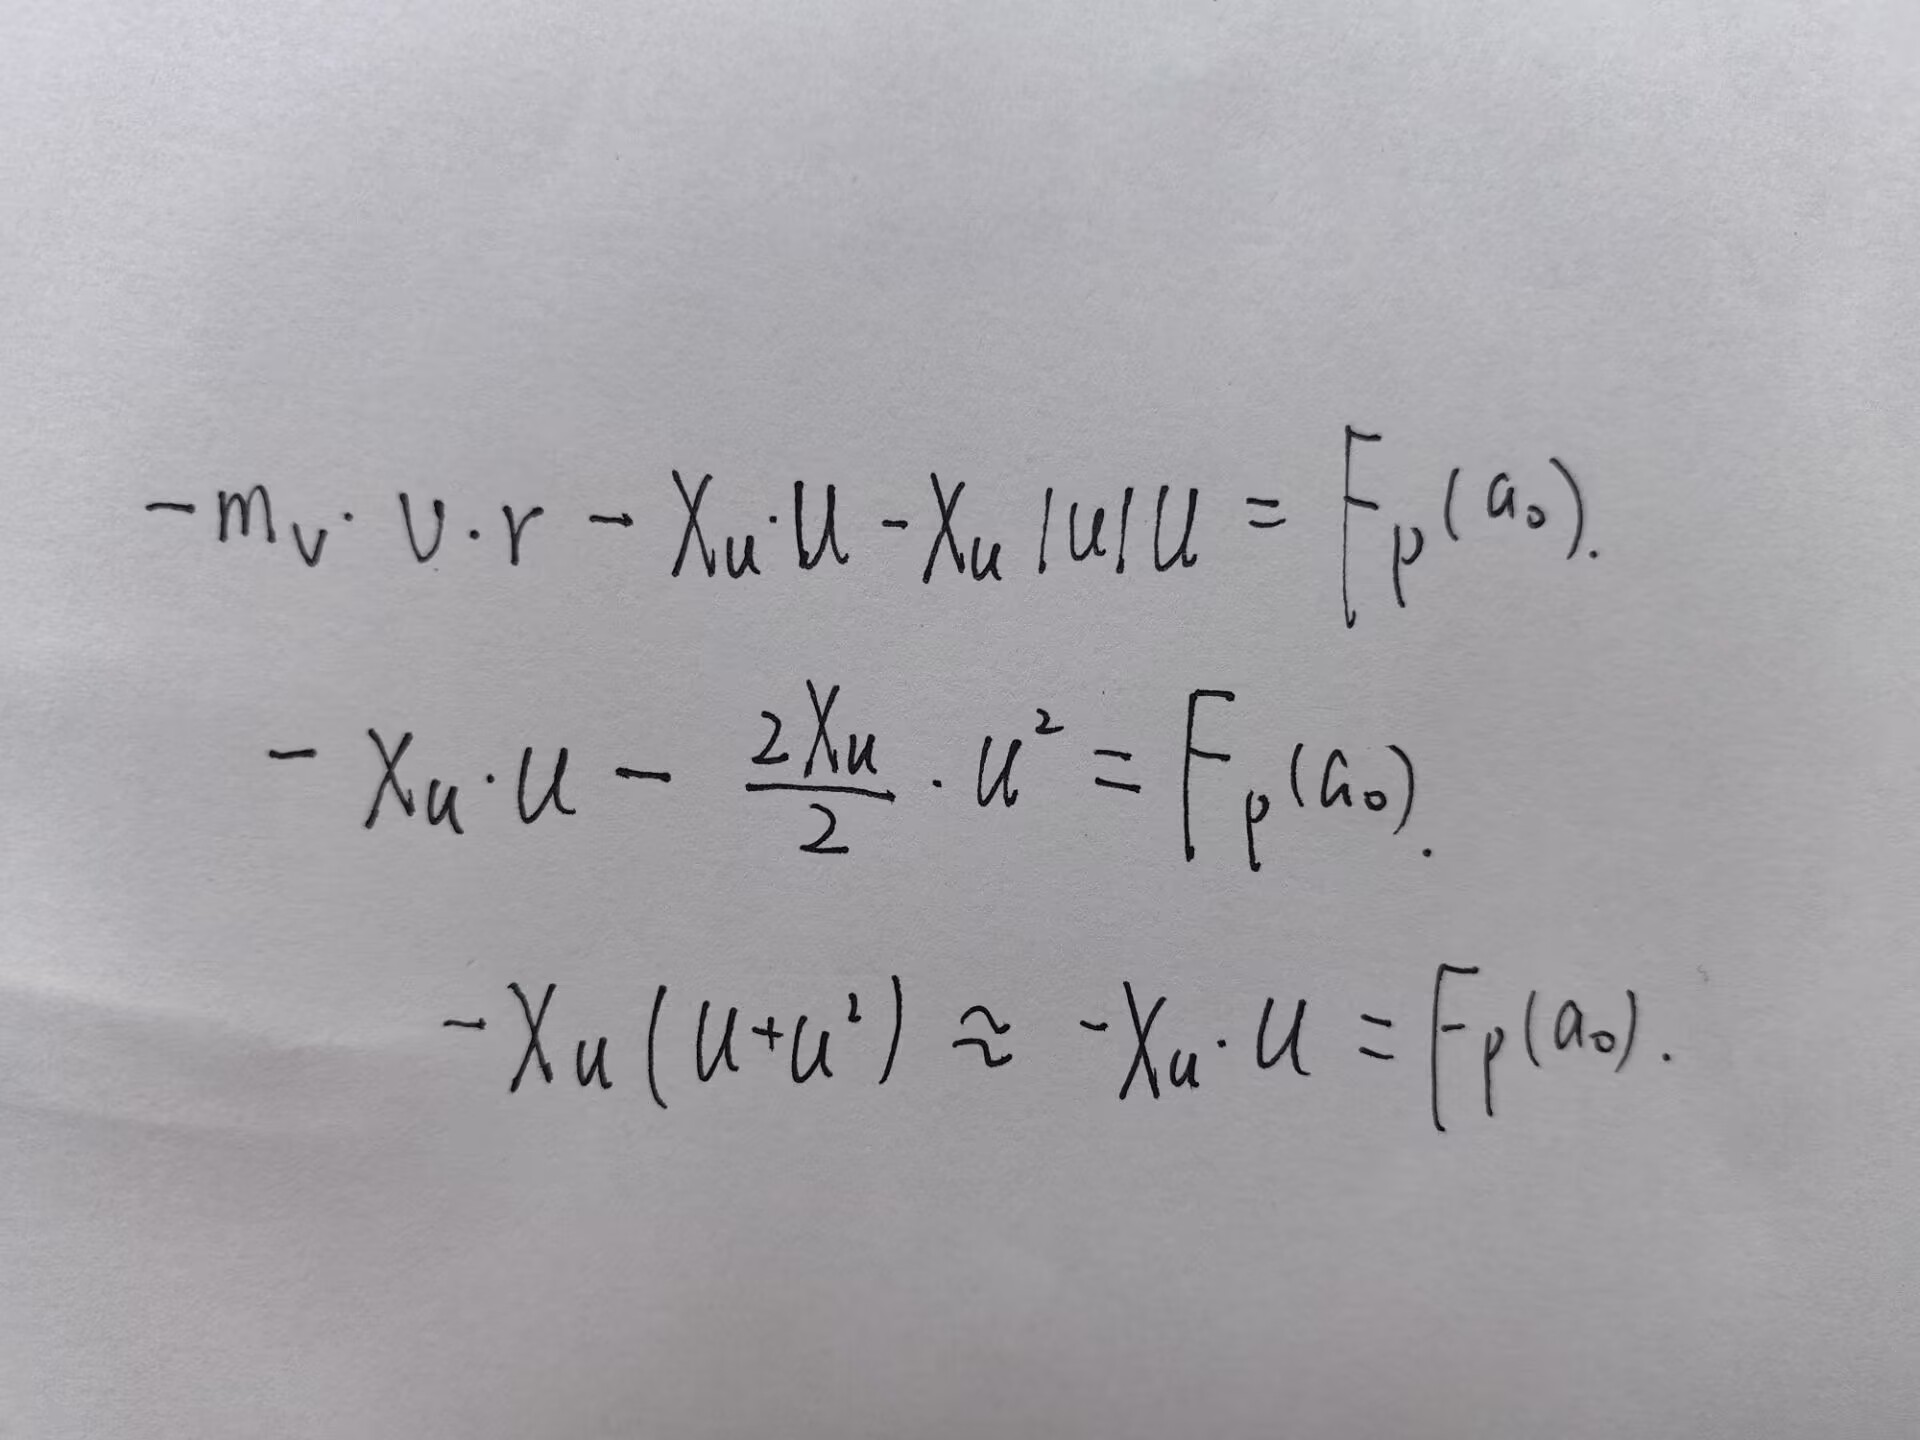 -m_v · v · r - X_u · u - X_u |u| u = F_p(a_0).
-X_u · u - \frac{2X_u}{2} · u^2 = F_p(a_0).
-X_u (u + u^2) ≈ -X_u · u = F_p(a_0).